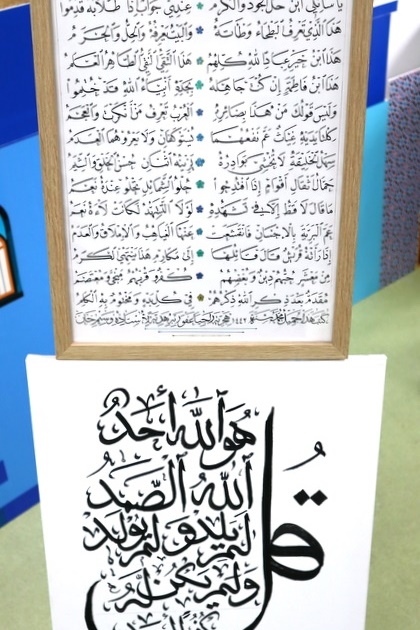 يا سائلي أين حل الجود والكرم * عندي جواب إذا طلابه قدموا
هذا الذي تعرف البطحاء وطأته * والبيت يعرفه والحل والحرم
هذا ابن خير عباد الله كلهم * هذا التقي النقي الطاهر العلم
هذا ابن فاطمة إن كنت جاهله * بجده أنبياء الله قد ختموا
وليس قولك من هذا بضائره * العرب تعرف من أنكرت والعجم
كلتا يديه غياث عم نفعهما * تستوكفان ولا يعروهما العدم
سهل الخليقة لا تخشى بوادره * يزينه اثنان حسن الخلق والشيم
حمال أثقال أقوام إذا افتدحوا * حلو الشمائل تحلو عنده نعم
ما قال لا قط إلا في تشهده * لولا التشهد كانت لاءه نعم
عم البرية بالإحسان فانقشعت * عنها الغياهب والإملاق والعدم
إذا رأته قريش قال قائلها * إلى مكارم هذا ينتهي الكرم
من معشر حبهم دين وبغضهم * كفر وقربهم منجى ومعتصم
مقدم بعد ذكر الله ذكرهم * في كل بدء ومختوم به الكلم
قُل
هُوَ اللهُ أَحَدٌ
اللهُ الصَّمَدُ
لَمْ يَلِدْ وَلَمْ يُولَدْ
وَلَمْ يَكُن لَّهُ